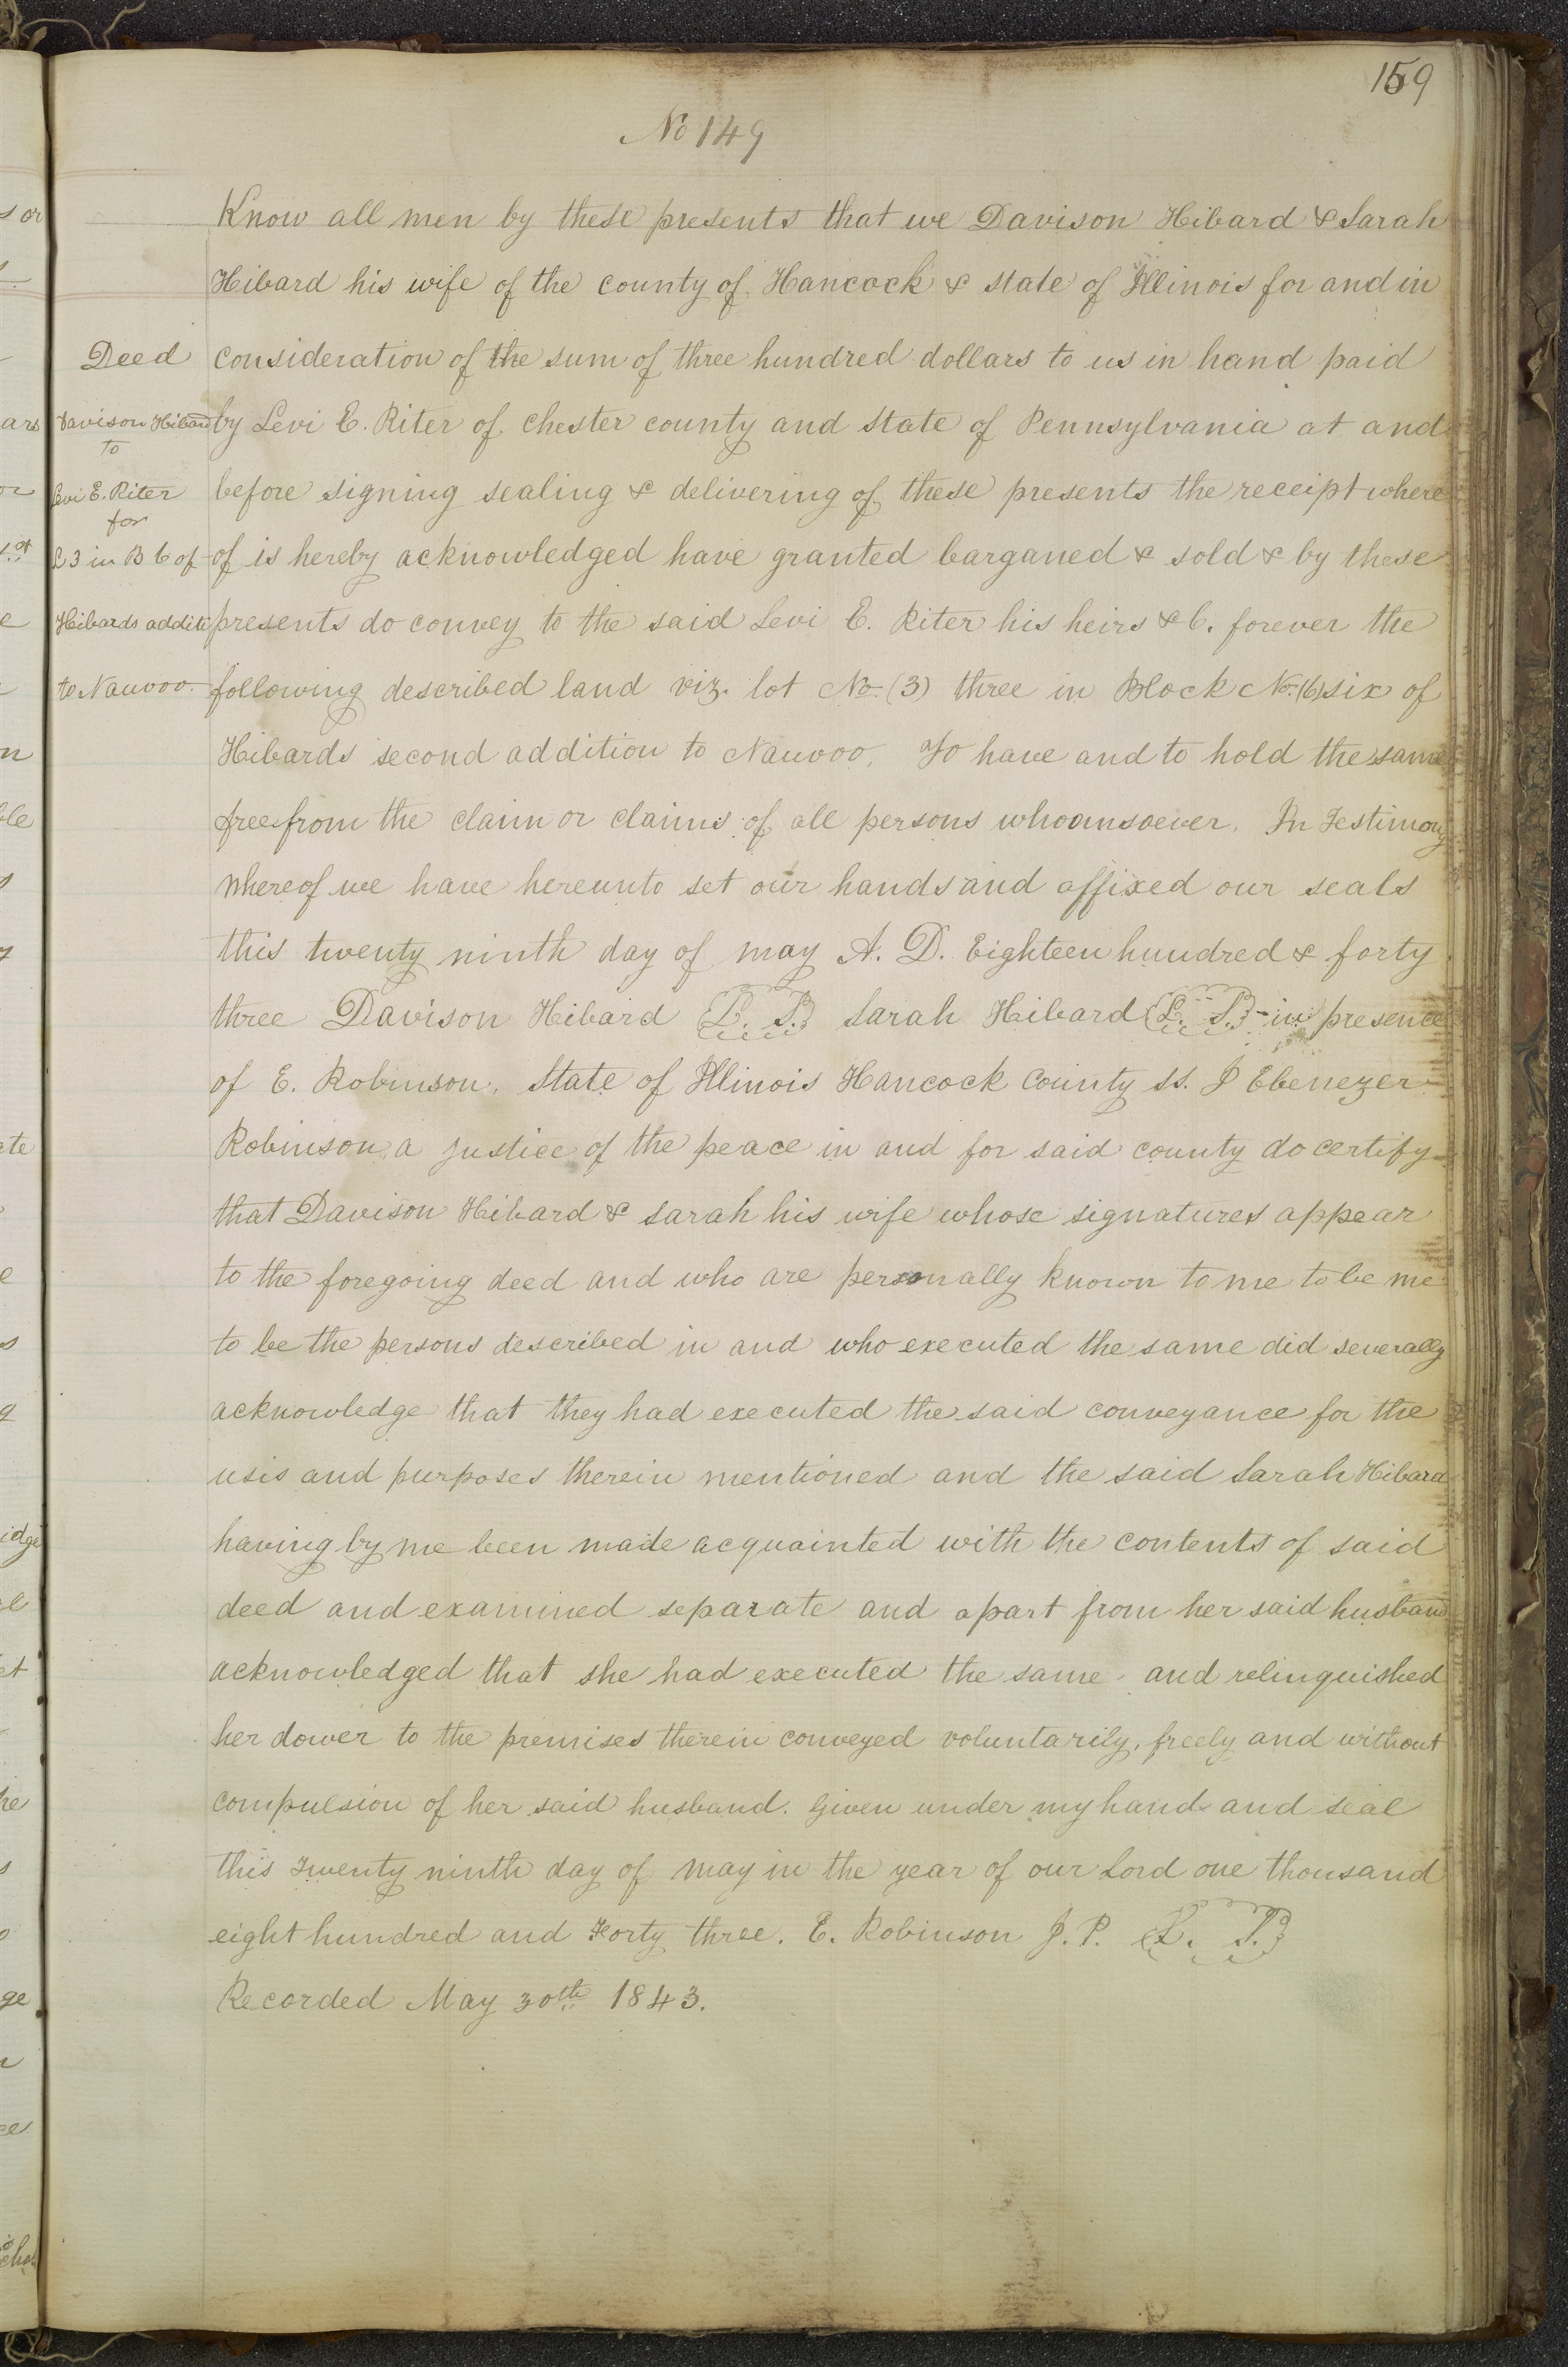 159
No 149
Know all men by these presents that we Davison Hibard & Sarah
Hibard his wife of the county of Hancock & state of Illinois for and in
Deed
consideration of the sum of three hundred dollars to us in hand paid
Davison Hibard
to
by Levi E. Riter of Chester county and State of Pennsylvania at and
Levi E. Riter
for
before signing sealing & delivering of these presents the receipt where
L 3 in B 6 of
of is hereby acknowledged have granted barganed & sold & by these
Hibards additi
presents do convey to the said Levi E. Riter his heirs &c. forever the
to Nauvoo.
following described land viz. lot No. (3) three in Block No. (6) six of
Hibards second addition to Nauvoo. To have and to hold the same
free from the claim or claims of all persons whoamsoever. In Testimony
whereof we have hereunto set our hands and affixed our seals
this twenty ninth day of may A. D. Eighteen hundred & forty
three Davison Hibard L. S. Sarah Hibard L. S. - in presence
of E. Robinson. State of Illinois Hancock County ss. I Ebenezer
Robinson a justice of the peace in and for said county do certify
that Davison Hibard & Sarah his wife whose signatures appear
to the foregoing deed and who are personally known to me to be me
to be the persons described in and who executed the same did severally
acknowledge that they had executed the said conveyance for the
usis and purposes therein mentioned and the said Sarah Hibard
having by me been made acquainted with the contents of said
deed and examined separate and apart from her said husband
acknowledged that she had executed the same and relinquished
her dower to the premises therein conveyed voluntarily, freely and without
compulsion of her said husband. Given under my hand and seal
this Twenty ninth day of May in the year of our Lord one thousand
eight hundred and Forty three. E. Robinson J. P. L. S.
Recorded May 30th 1843.